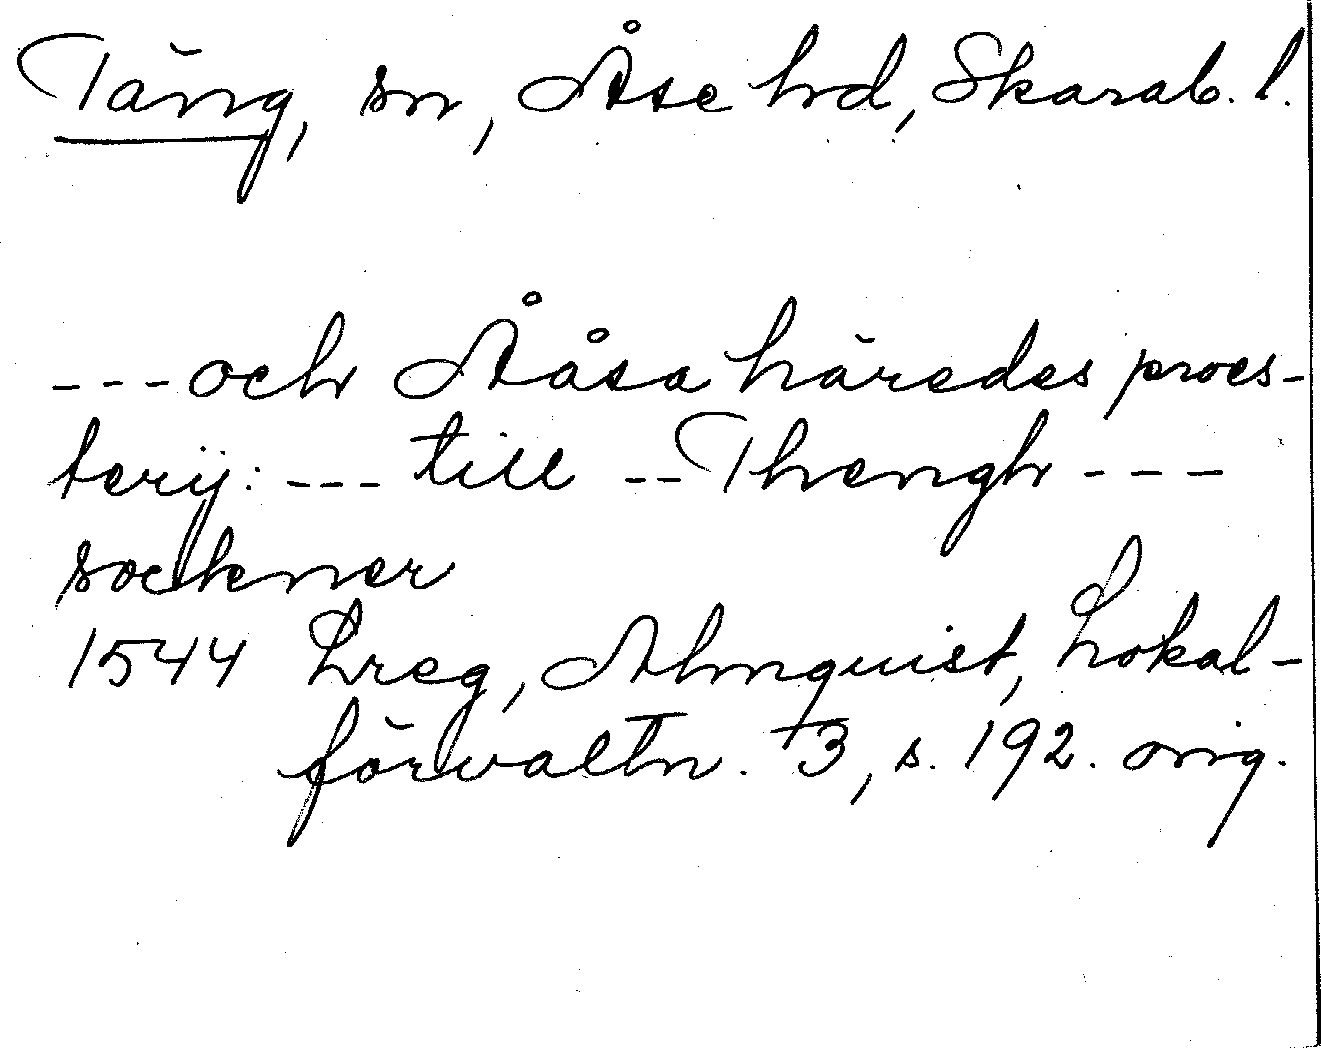 Täng, sn, Åse hd, Skarab. l.
--- och Ååsa häredes proes-
terij: --- till -- Thengh ---
sockner
1544 Lreg, Almquist, Lokal-
förvaltn. 3, s. 192. orig.